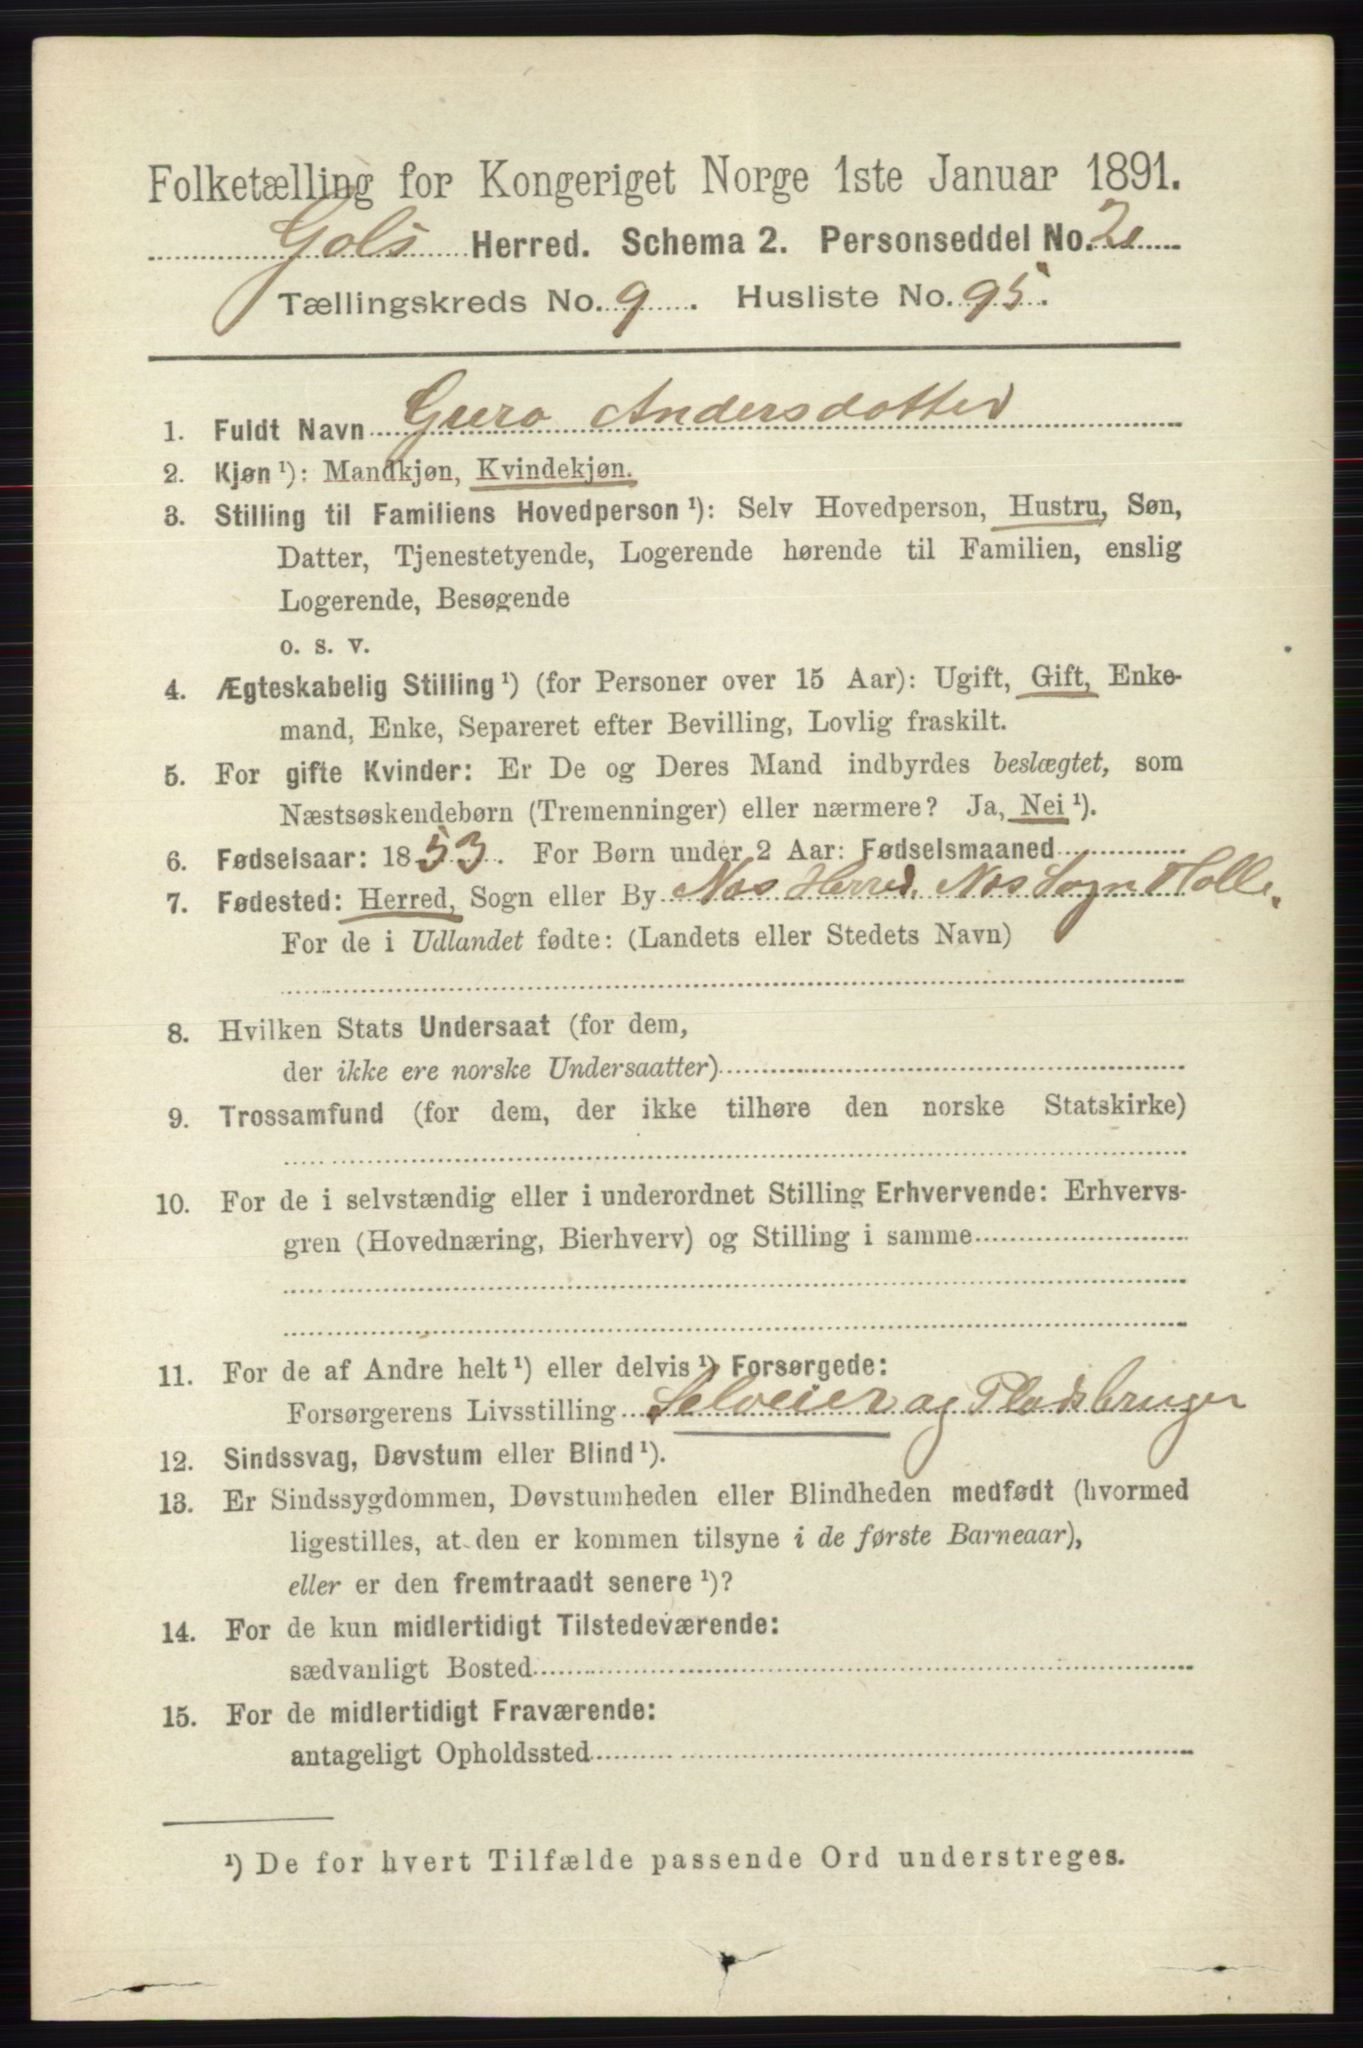 Folketælling for Kongeriget Norge 1ste Januar 1891.
Gols Herred. Schema 2. Personseddel No. 2
Tællingskreds No. 9. Husliste No. 95.
1. Fuldt Navn Guro Andersdotter
2. Kjøn ¹): Mandkjøn, Kvindekjøn.
3. Stilling til Familiens Hovedperson ¹): Selv Hovedperson, Hustru, Søn,
Datter, Tjenestetyende, Logerende hørende til Familien, enslig
Logerende, Besøgende
o. s. v.
4. Ægteskabelig Stilling ¹) (for Personer over 15 Aar): Ugift, Gift, Enke-
mand, Enke, Separeret efter Bevilling, Lovlig fraskilt.
5. For gifte Kvinder: Er De og Deres Mand indbyrdes beslægtet, som
Næstsøskendebørn (Tremenninger) eller nærmere? Ja, Nei ¹).
6. Fødselsaar: 1853. For Børn under 2 Aar: Fødselsmaaned
7. Fødested: Herred, Sogn eller By Nas Herred, Nas Sogn
For de i Udlandet fødte: (Landets eller Stedets Navn)
8. Hvilken Stats Undersaat (for dem,
der ikke ere norske Undersaatter)
9. Trossamfund (for dem, der ikke tilhøre den norske Statskirke)
10. For de i selvstændig eller i underordnet Stilling Erhvervende: Erhvervs-
gren (Hovednæring, Bierhverv) og Stilling i samme
11. For de af Andre helt ¹) eller delvis ¹) Forsørgede:
Forsørgerens Livsstilling Selveier og Pladsbruger
12. Sindssvag, Døvstum eller Blind ¹).
13. Er Sindssygdommen, Døvstumheden eller Blindheden medfødt (hvormed
ligestilles, at den er kommen tilsyne i de første Barneaar),
eller er den fremtraadt senere ¹)?
14. For de kun midlertidigt Tilstedeværende:
sædvanligt Bosted
15. For de midlertidigt Fraværende:
antageligt Opholdssted
¹) De for hvert Tilfælde passende Ord understreges.